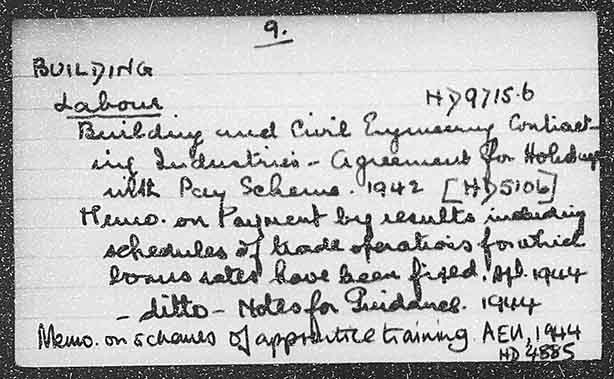 9.
BUILDING
Labour HD9715.6
Building and Civil Engineering Contract-
ing Industries - Agreement for Holidays
with Pay Scheme. 1942 [HD5106]
Memo. on Payment by results including
schedules of trade operations for which
bonus rates have been fixed. Apl. 1944
- ditto - Notes for Guidance. 1944
Memo. on schemes of apprentice training. AEU, 1944
HD 4885